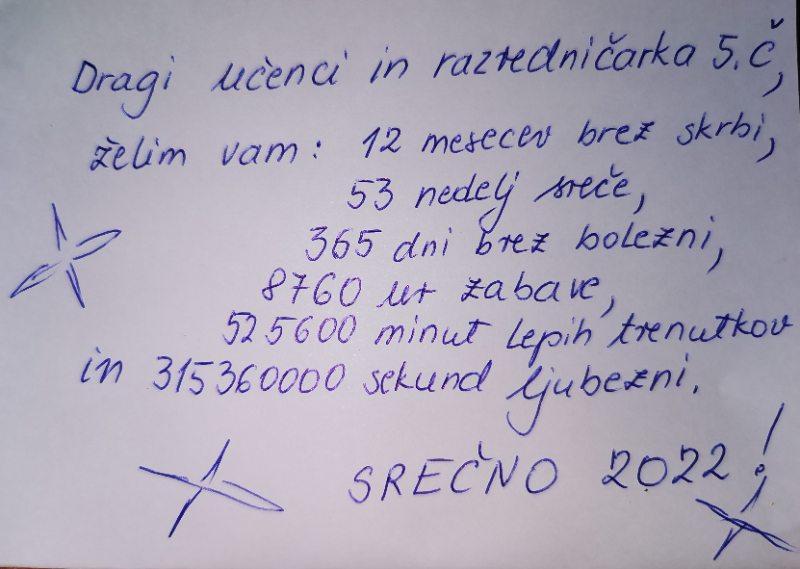 Dragi učenci in razredničarka 5.Č,
želim vam: 12 mesecev brez skrbi,
53 nedelj sreče,
365 dni brez bolezni,
8760 ur zabave,
525600 minut lepih trenutkov
in 315360000 sekund ljubezni.
SREČNO 2022!